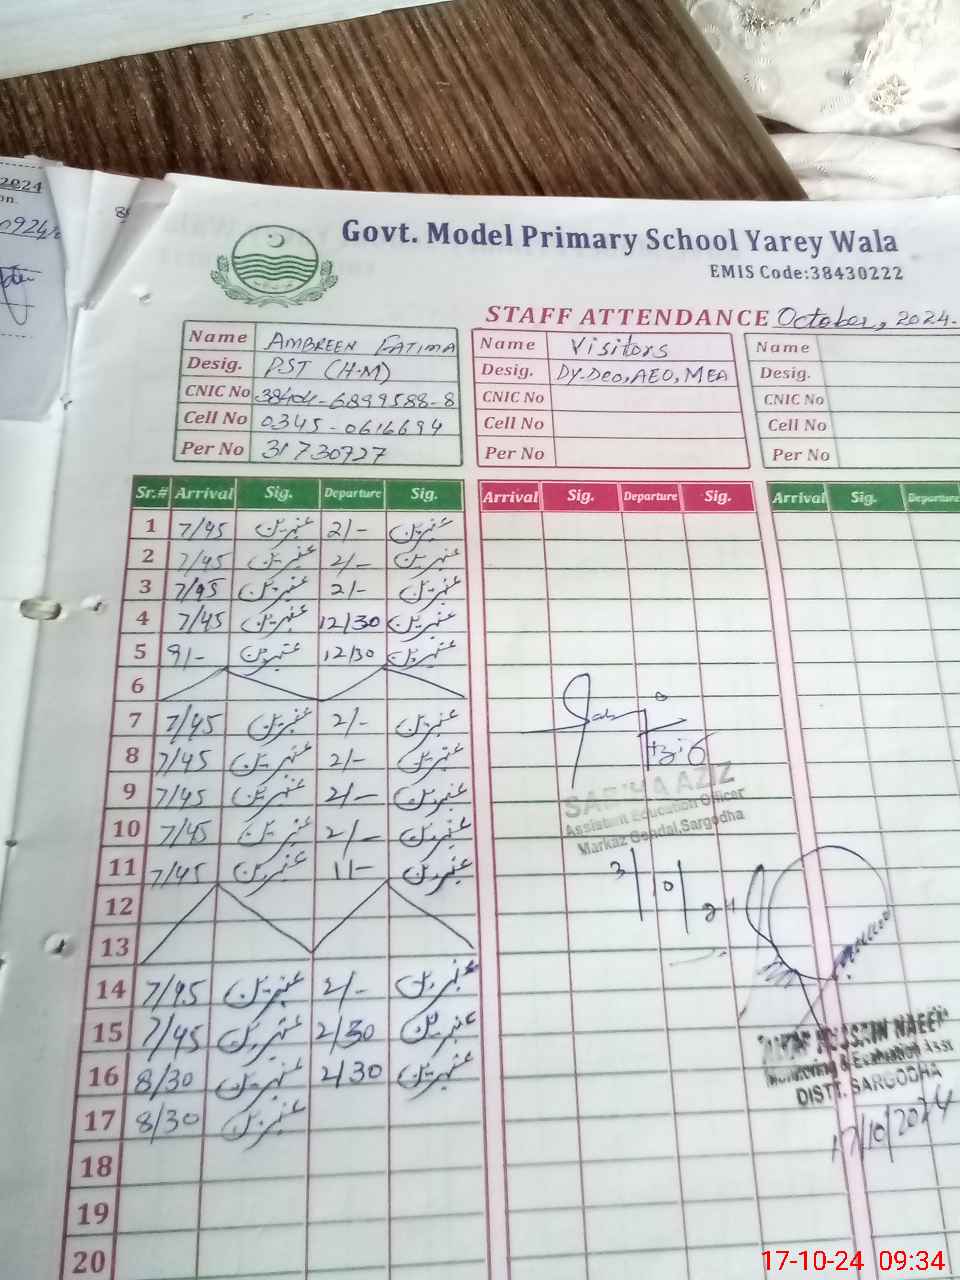 2024
on.
Govt. Model Primary School Yarey Wala
EMIS Code:38430222
STAFF ATTENDANCE October, 2024.
Name AMBREEN FATIMA
Desig. PST (H.M)
CNIC No 38404-6899588-8
Cell No 0345-0616694
Per No 31730727
Name Visitors
Desig. Dy.Deo, AEO, MEA
CNIC No
Cell No
Per No
Name
Desig.
CNIC No
Cell No
Per No
Sr.# Arrival Sig. Departure Sig. Arrival Sig. Departure Sig. Arrival Sig. Departure
1 7/45 عنبرین 2/- عنبرین
2 7/45 عنبرین 2/- عنبرین
3 7/45 عنبرین 2/- عنبرین
4 7/45 عنبرین 12/30 عنبرین
5 9/- عنبرین 12/30 عنبرین
6
7 7/45 عنبرین 2/- عنبرین
8 7/45 عنبرین 2/- عنبرین
9 7/45 عنبرین 2/- عنبرین
10 7/45 عنبرین 2/- عنبرین
11 7/45 عنبرین 11- عنبرین
12
13
14 7/45 عنبرین 2/- عنبرین
15 7/45 عنبرین 2/30 عنبرین
16 8/30 عنبرین 2/30 عنبرین
17 8/30 عنبرین
18
19
20
SADIYA AZIZ
Assistant Education Officer
Markaz Gondal, Sargodha
3/10/24
HUSSAIN NAEEM
Monitoring & Evaluation Asst
DISTT. SARGODHA
17/10/2024
17-10-24 09:34